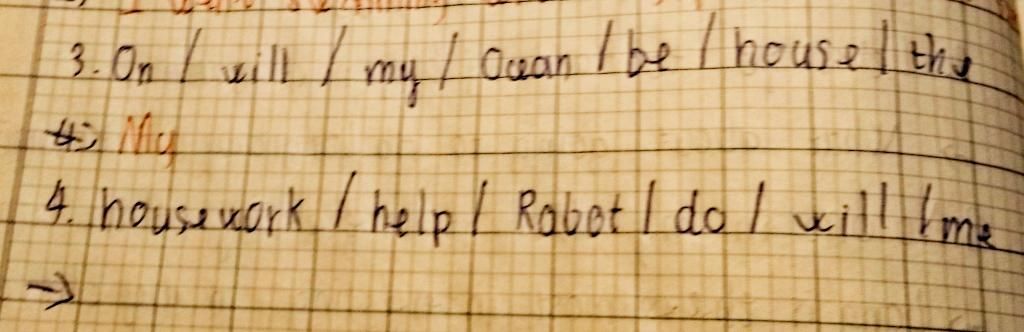 3. On / will / my / Ocean / be / house / the
My
4. housework / help / Robot / do / will / me
→